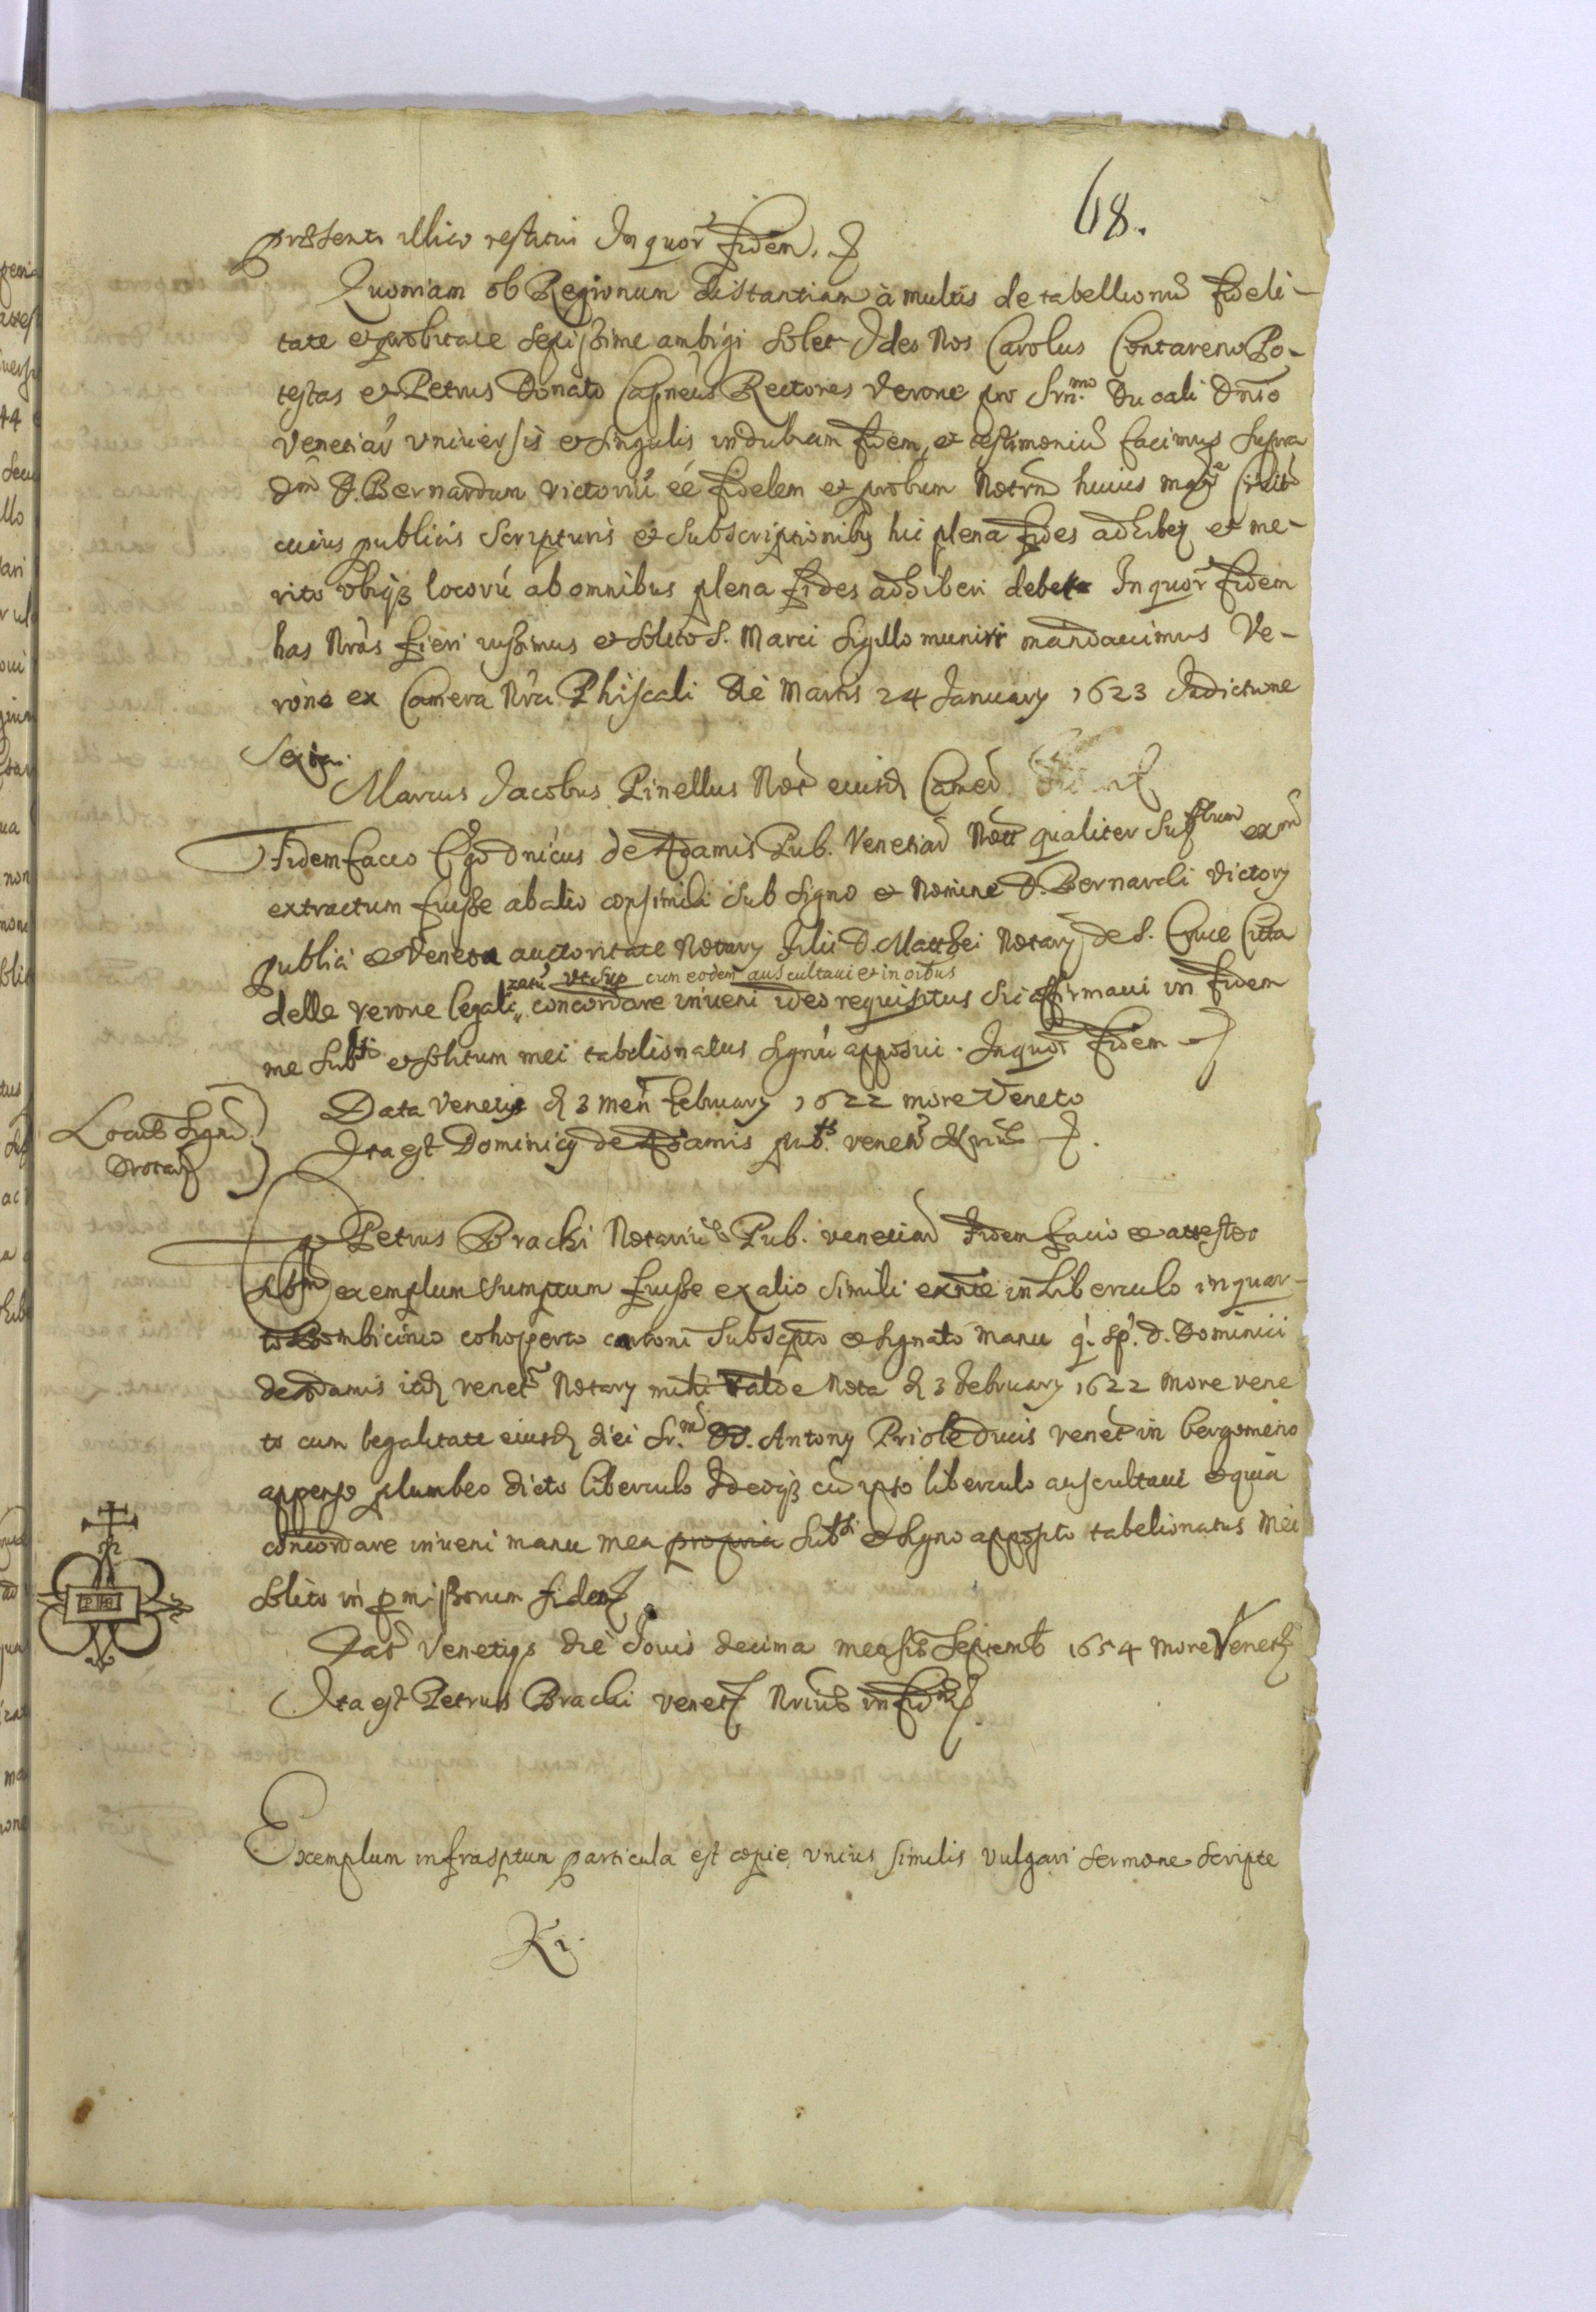 68.
presenti illico restitui In quor fidem.
Quoniam ob Regionum distantiam à multis de tabellionũ fideli-
tate et probitate sepissime ambigi solet Ideo Nos Carolus Contareno Po-
testas et Petrus Donato Capneus Rectores Verone pro Srm.mo Ducali Dnio
Venetiar universis et singulis indubiam fidem, et testimoniũ facimus supra
D. Bernardum Victoriũ eé fidelem et probum Notm huius mag.ce Civit
cuius publicis scripturis et subscriptionibus hic plena fides adhibet et me-
rito ubiq locorú ab omnibus plena fides adhiberi debet In quor fidem
has Nras fieri iussimus et solito S. Marci sigillo muniri mandavimus Ve-
rone ex Camera Nra Phiscali die Martis 24 January 1623 Indictione
Sexta.
Marcus Jacobus Pinellus Not eiusd Camer
Fidem facio Ego Dnicus de Adamis Pub. Venetiar Nott qualiter exm
extractum fuisse ab alio consimili sub signo et Nomine D. Bernardi Victory
publici et Veneta auctoritate Notary filii D. Matthei Notary de S. Cruce Citta
zatú ut sup cum eodem auscultavi et in oibus
delle verone legali concordare inveni ideo requisitus sic affirmavi in fidem
me Subsi et solitum mei tabelionatus signú apposui. In quor fidem
Data Venetijs d 3 men february 1622 more Veneto
Locus Signi
Notarij
Ita est Dominicus de Adamis pub. venet
Ego Petrus Brachi Notarius Pub. venetiar fidem facio et attestor
exemplum sumptum fuisse ex alio simili exnte in Liberculo in quar-
to Bombicineo cohoperto cartoni subscpto et signato manu q. sp. d. Dominici
de Adamis itd venet Notary mihi valde Nota d 3 february 1622 more vene
to cum legalitate eiusd diei Sr.mi DD. Antony Priole Ducis venet in bergomeno
appenso plumbeo dicto liberculo Ideoq cũ ipso liberculo auscultavi et quia
concordare inveni manu mea propria Subsi et signo apposito tabelionatus mei
solito in pmissorum fidem
Dat Venetijs die Jovis decima mensis Septemb 1654 more Venet
Ita est Petrus Brachi venet Nrius in fid
Exemplum infrasptum particula est copie unius similis vulgari sermone scripte